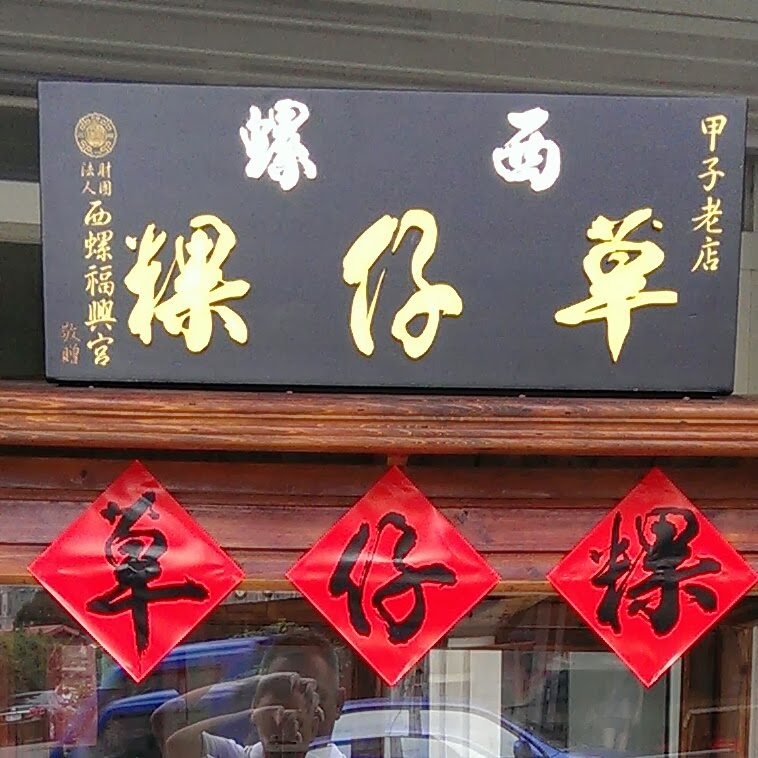 甲子老店
西螺
草仔粿
財團法人
西螺福興宮
敬贈
草仔粿